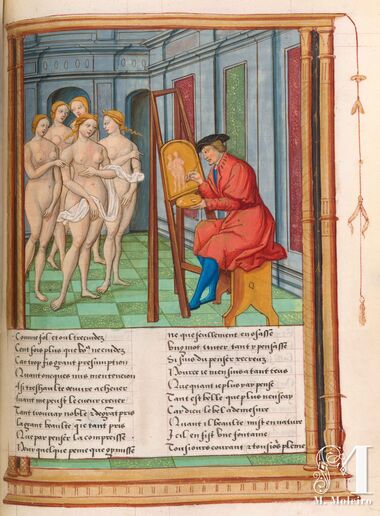 Comme fol et oultrecuidez
Cent fois plus que vo9 ne cuidez
Car trop fis grant presumption
Quant oncques mis mon tencion
A si treshaulte oeuvre achever
Avant me peust le cueur crever
Tant trouvay noble z de grat pris
La grant beaulte que tant pris
Que par penser la comprisse
Pour quelque peine que gy misse
ne que seullement en osasse
Ung mot tinter tant y pensasse
Si suis du penser recreuz
Pource ie men suis a tant teuz
Que quant ie plus y ay pense
Tant est belle que plus nen scay
Car dieu le bel a demesure
Quant il beaulte mist en nature
Il en fist une fontaine
Tousiours courant z tousiors pleine
M
M. Moleiro